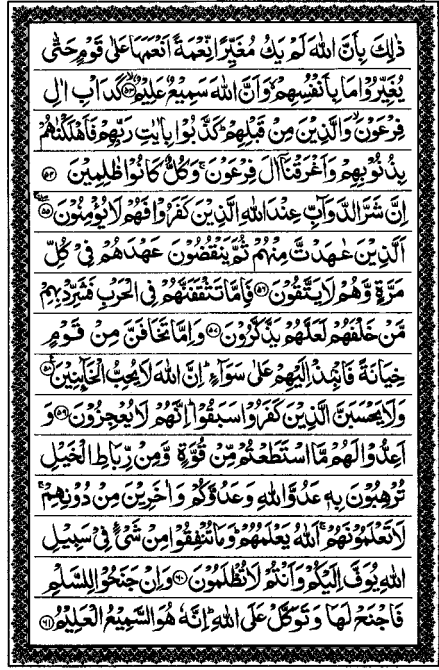 ذٰلِكَ بِاَنَّ اللهَ لَمْ يَكُ مُغَيِّرًا نِّعْمَةً اَنْعَمَهَا عَلٰى قَوْمٍ حَتّٰى
يُغَيِّرُوْا مَا بِاَنْفُسِهِمْ ۙ وَاَنَّ اللهَ سَمِيْعٌ عَلِيْمٌ ۙ﴿۵۳﴾ كَدَاْبِ اٰلِ
فِرْعَوْنَ ۙ وَالَّذِيْنَ مِنْ قَبْلِهِمْ ؕ كَذَّبُوْا بِاٰيٰتِ رَبِّهِمْ فَاَهْلَكْنٰهُمْ
بِذُنُوْبِهِمْ وَاَغْرَقْنَاۤ اٰلَ فِرْعَوْنَ ۚ وَكُلٌّ كَانُوْا ظٰلِمِيْنَ ﴿۵۴﴾
اِنَّ شَرَّ الدَّوَآبِّ عِنْدَ اللهِ الَّذِيْنَ كَفَرُوْا فَهُمْ لَا يُؤْمِنُوْنَ ﴿۵۵﴾
اَلَّذِيْنَ عٰهَدْتَّ مِنْهُمْ ثُمَّ يَنْقُضُوْنَ عَهْدَهُمْ فِيْ كُلِّ
مَرَّةٍ وَّهُمْ لَا يَتَّقُوْنَ ﴿۵۶﴾ فَاِمَّا تَثْقَفَنَّهُمْ فِي الْحَرْبِ فَشَرِّدْ بِهِمْ
مَّنْ خَلْفَهُمْ لَعَلَّهُمْ يَذَّكَّرُوْنَ ﴿۵۷﴾ وَاِمَّا تَخَافَنَّ مِنْ قَوْمٍ
خِيَانَةً فَانْۢبِذْ اِلَيْهِمْ عَلٰى سَوَآءٍ ؕ اِنَّ اللهَ لَا يُحِبُّ الْخَآئِنِيْنَ ﴿۵۸﴾
وَلَا يَحْسَبَنَّ الَّذِيْنَ كَفَرُوْا سَبَقُوْا ؕ اِنَّهُمْ لَا يُعْجِزُوْنَ ﴿۵۹﴾ وَ
اَعِدُّوْا لَهُمْ مَّا اسْتَطَعْتُمْ مِّنْ قُوَّةٍ وَّمِنْ رِّبَاطِ الْخَيْلِ
تُرْهِبُوْنَ بِهٖ عَدُوَّ اللهِ وَعَدُوَّكُمْ وَاٰخَرِيْنَ مِنْ دُوْنِهِمْ ۚ
لَا تَعْلَمُوْنَهُمْ ۚ اَللهُ يَعْلَمُهُمْ ؕ وَمَا تُنْفِقُوْا مِنْ شَيْءٍ فِيْ سَبِيْلِ
اللهِ يُوَفَّ اِلَيْكُمْ وَاَنْتُمْ لَا تُظْلَمُوْنَ ﴿۶۰﴾ وَاِنْ جَنَحُوْا لِلسَّلْمِ
فَاجْنَحْ لَهَا وَتَوَكَّلْ عَلَى اللهِ ؕ اِنَّهٗ هُوَ السَّمِيْعُ الْعَلِيْمُ ﴿۶۱﴾